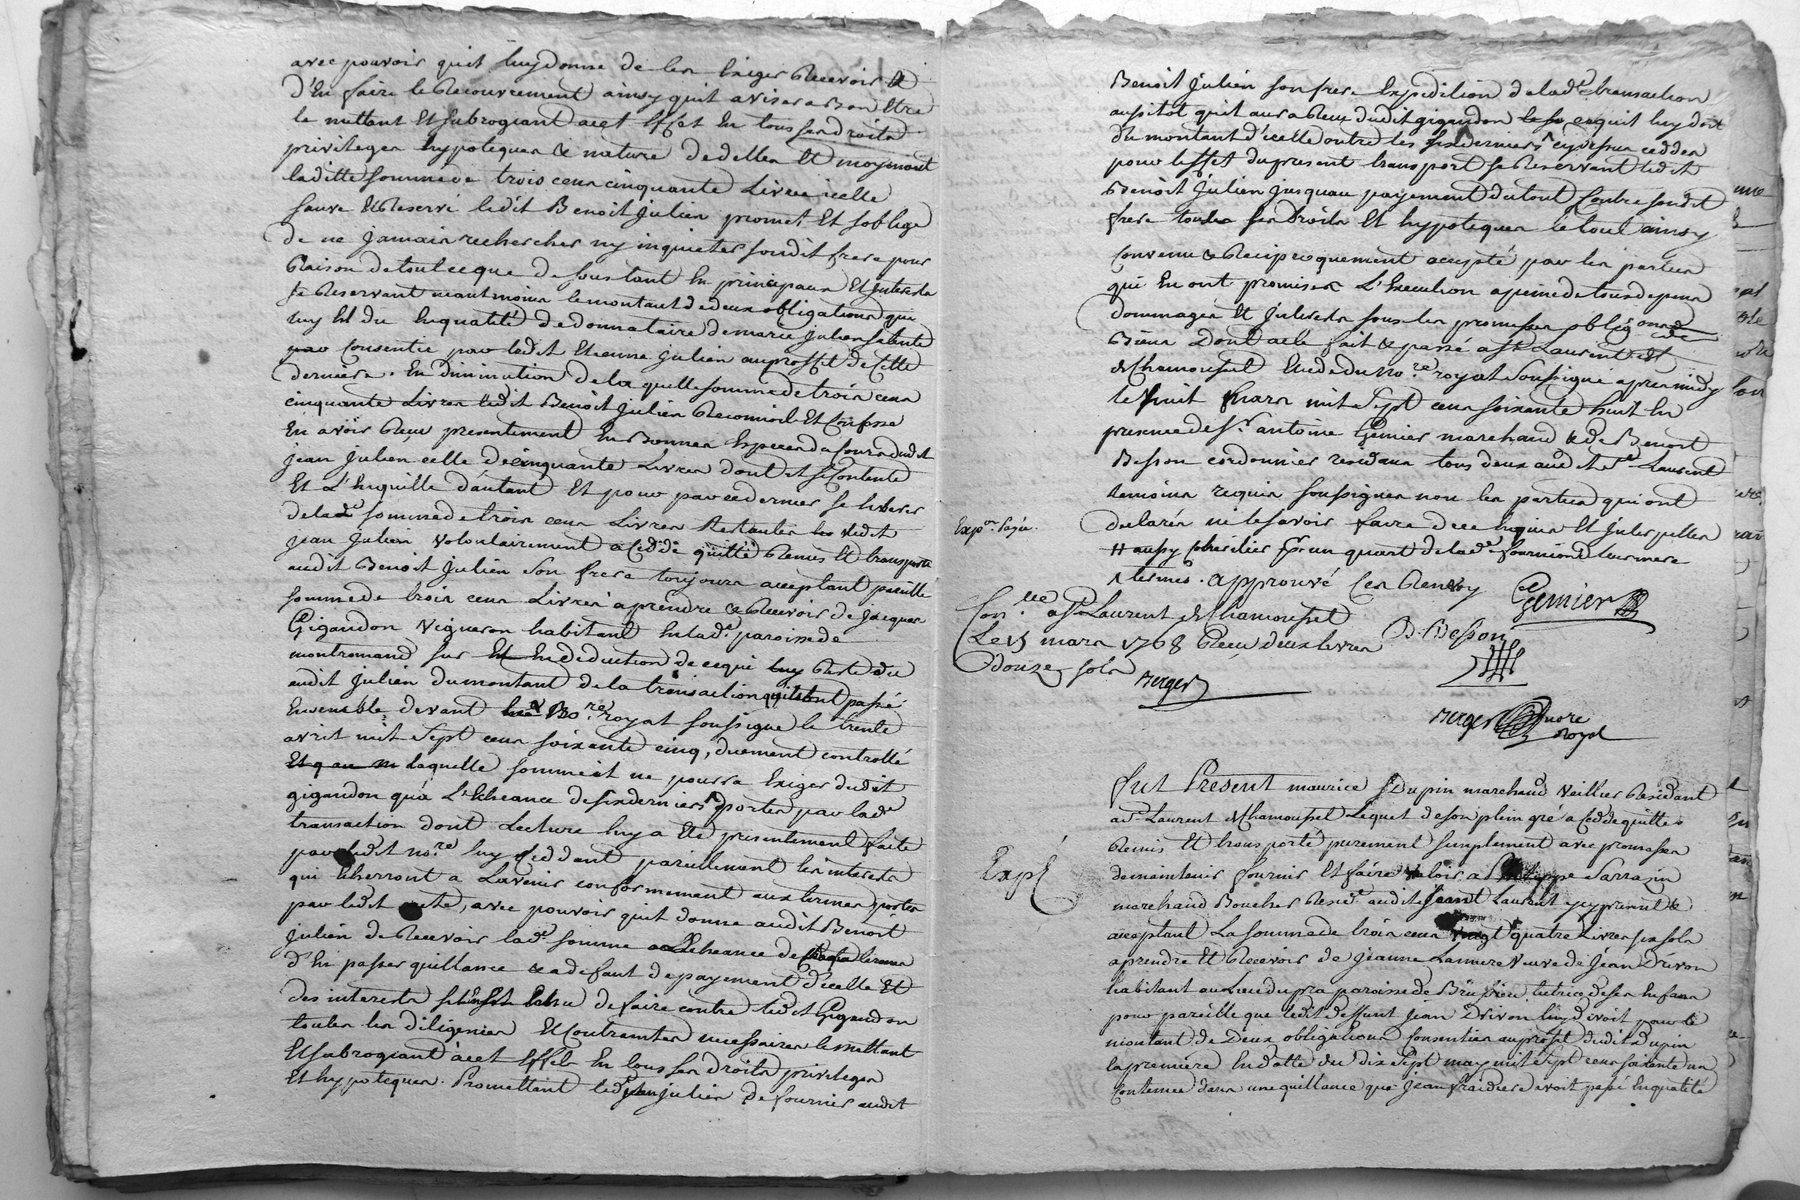 avec pouvoir quil luy donne de les Exiger Recevoir &
d'En faire le Recouvrement ainsy quil avisera Bon Etre
le mettant Et subrogeant acet Effet En tous ses droits
privileges hypoteques & nature dedettes Et moyenant
laditte somme de trois cens cinquante Livres icelle
sauve Et Reservé ledit Benoit Julien promet Et soblige
de ne jamais rechercher ny inquieter sondit frere pour
Raison detout ceque dessus tant En principaux Et Interests
se Reservant neantmoins lemontant dedeux obligations qui
luy Est du Enqualité de donnataire demarie Julien sa tante
par Consentie par ledit Etienne Julien auproffit de Cette
derniere. En diminution dela quelle somme de trois cens
cinquante Livres ledit Benoit Julien Reconnoit Et Confesse
En avoir Reçu presentement En Bonnes Especes de Cours dudit
jean Julien celle de cinquante Livres dont il se Contente
Et L'Enquitte d'autant Et pour par ce dernier se liberer
delade somme de trois cens Livres Restantes ledit
jean Julien volontairement a Ceddé quitté Remis Et transporté
audit Benoit Julien son frere toujours acceptant pareille
somme de trois cens Livres aprendre & Recevoir de Jacques
Gigandon vigneron habitant En lade paroisse de
montromand sur Et En deduction de cequi luy Reste du
audit Julien dumontant de la transaction quils ont passé
Ensemble devant le No.re royal soussigné le trente
avril mil sept cens soixante cinq, duement controllé
Et q au m laquelle somme il ne pourra Exiger dudit
gigandon qu'a L'Echeance des six derniers portés par lade
transaction dont Lecture luy a Eté presentement faite
par ledit no.re luy Ceddant pareillement les interests
qui Echerront a L'avenir conformement aux termes portés
par ledit acte, avec pouvoir quil donne audit Benoit
Julien de Recevoir lade somme a L'Echeance de chaque termes
d'En passer quittance & a defaut de payement d'icelle Et
des interests de faire contre ledit Gigandon
toutes les diligences Et Contraintes necessaires le mettant
Et subrogeant àcet Effet En tous ses droits privileges
Et hypoteques. Promettant ledit jean julien de fournir audit
Benoit Julien son frere Expedition delade transaction
aussitot quil aura Reçu dudit gigandon ce quil luy doit
du montant d'icelle outre les six derniers ^ cydessus ceddés
pour l'effet dupresent transport se Reservant ledit
Benoit Julien jusquau payement dutout Contre sondit
frere tous ses Droits Et hypoteques le tout ainsy
Convenu & Reciproquement accepté par les parties
qui En ont promises L'Execution apeine detous depens
Dommages Et Interests sous les promesses obligons de
Biens Dont acte fait & passé a St Laurent
de Chamousset Etude du No.re royal soussigné apres midy
le huit mars mil sept cens soixante huit En
presence de Sr antoine Gemier marchand & de Benoit
Besson cordonnier residans tous deux audit St Laurent
temoins requis soussignés non les parties qui ont
declarés ne le savoir faire de ce Enquis Et Interpellés
Expon Payée.
^ termes. approuvé Ces Renvoy Gemier
Con.llé a St Laurent de Chamousset
Le 15 mars 1768 Reçu deux livres
Douze sols Berger
B. Besson
Berger nore
royal
Fut Present maurice Dupin marchand Veillier Residant
au St Laurent de Chamousset Lequel deson plein gré a Ceddé quitté
Remis Et transporté purement simplement avec promesses
Expé
demaintenir fournir Et faire valoir, a Philippe Sarrazin
marchand Boucher Reside audit St Laurent cy present &
acceptant La somme de trois cens vingt quatre Livres six sols
aprendre Et Recevoir de Jeanne Lanniere veuve de Jean Drivon
habitant au Lieu du pra paroisse de Brussieu tutrice deses Enfans
pour pareille que ledit deffunt Jean Drivon luy devoit pour le
montant de Deux obligations Consenties auprofit dudit Dupin
la premiere En datte du dix sept may mil sept cens soixante un
Contenue dans une quittance que Jean avoit passé Enqualité